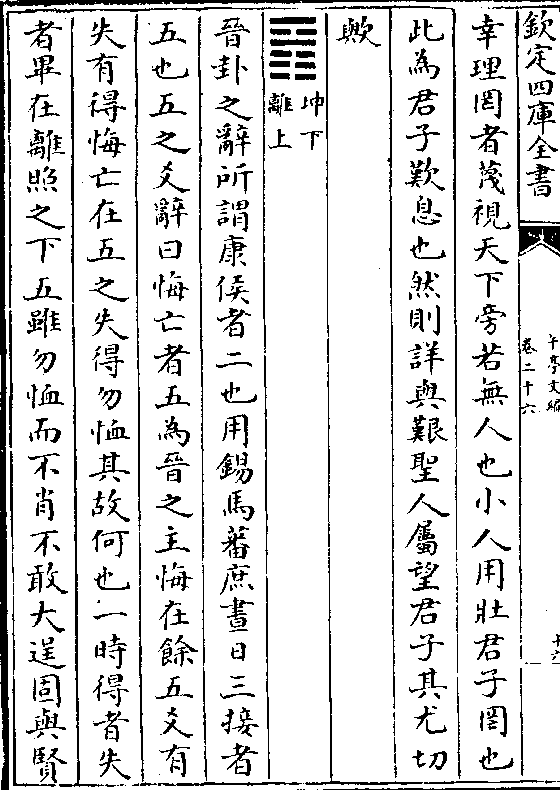 欽定四庫全書
午亭文編
卷二十六
十六
幸理罔者蔑視天下旁若無人也小人用壯君子罔也
此為君子歎息也然則詳與艱聖人屬望君子其尤切
歟
䷢
坤下
離上
晉卦之辭所謂康侯者二也用錫馬蕃庶晝日三接者
五也五之爻辭曰悔亡者五為晉之主悔在餘五爻有
失有得悔亡在五之失得勿恤其故何也一時得者失
者畢在離照之下五雖勿恤而不肖不敢大逞固與賢